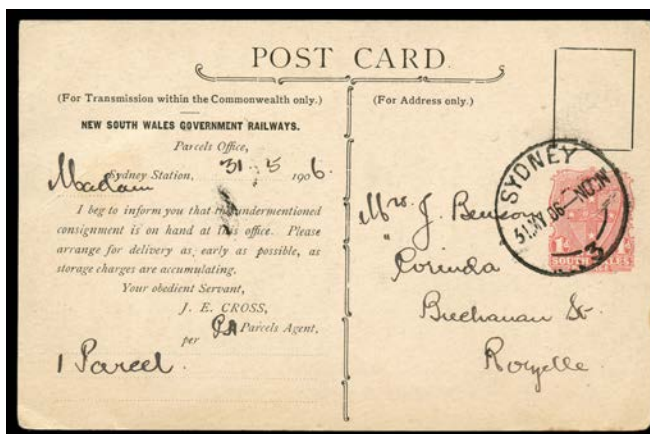 POST CARD.
(For Transmission within the Commonwealth only.)
NEW SOUTH WALES GOVERNMENT RAILWAYS.
Parcels Office,
Sydney Station, 31 . 5 1906.
Madam
I beg to inform you that the undermentioned
consignment is on hand at this office. Please
arrange for delivery as early as possible, as
storage charges are accumulating.
Your obedient Servant,
J. E. CROSS,
Parcels Agent,
per
1 Parcel.
(For Address only.)
SYDNEY
31 MY 06 - NOON
3
SOUTH WALES
Mrs. J. Benson
"Corinda"
Buchanan St.
Rozelle